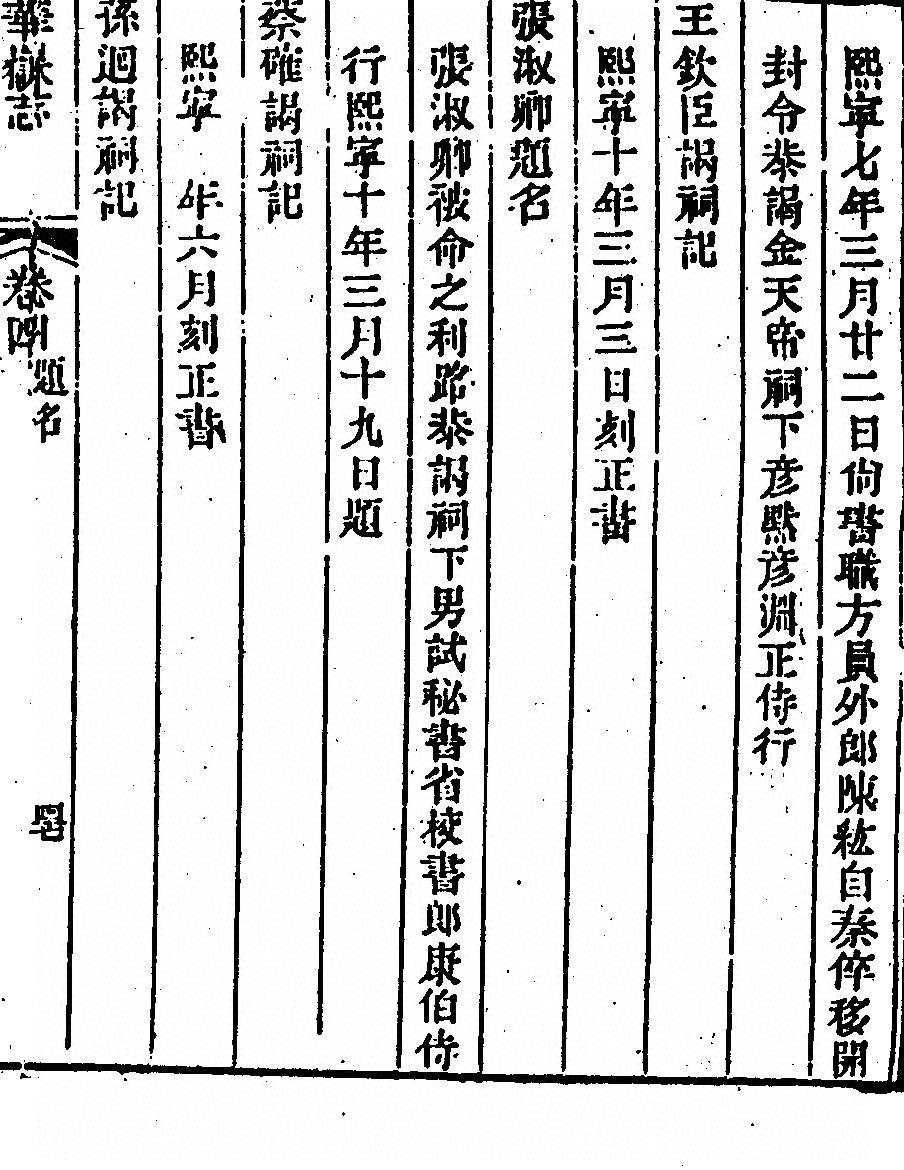 熙寧七年三月廿二日尙書職方員外郎陳紘自秦倅移開
封令恭謁金天帝祠下彦黙彦淵正侍行
王欽臣謁祠記
熙寧十年三月三日刻正書
張淑卿題名
張淑卿被命之利路恭謁祠下男試秘書省校書郎康伯侍
行熙寧十年三月十九日題
蔡確謁祠記
熙寧　年六月刻正書
孫迥謁祠記
華嶽志
卷四
題名